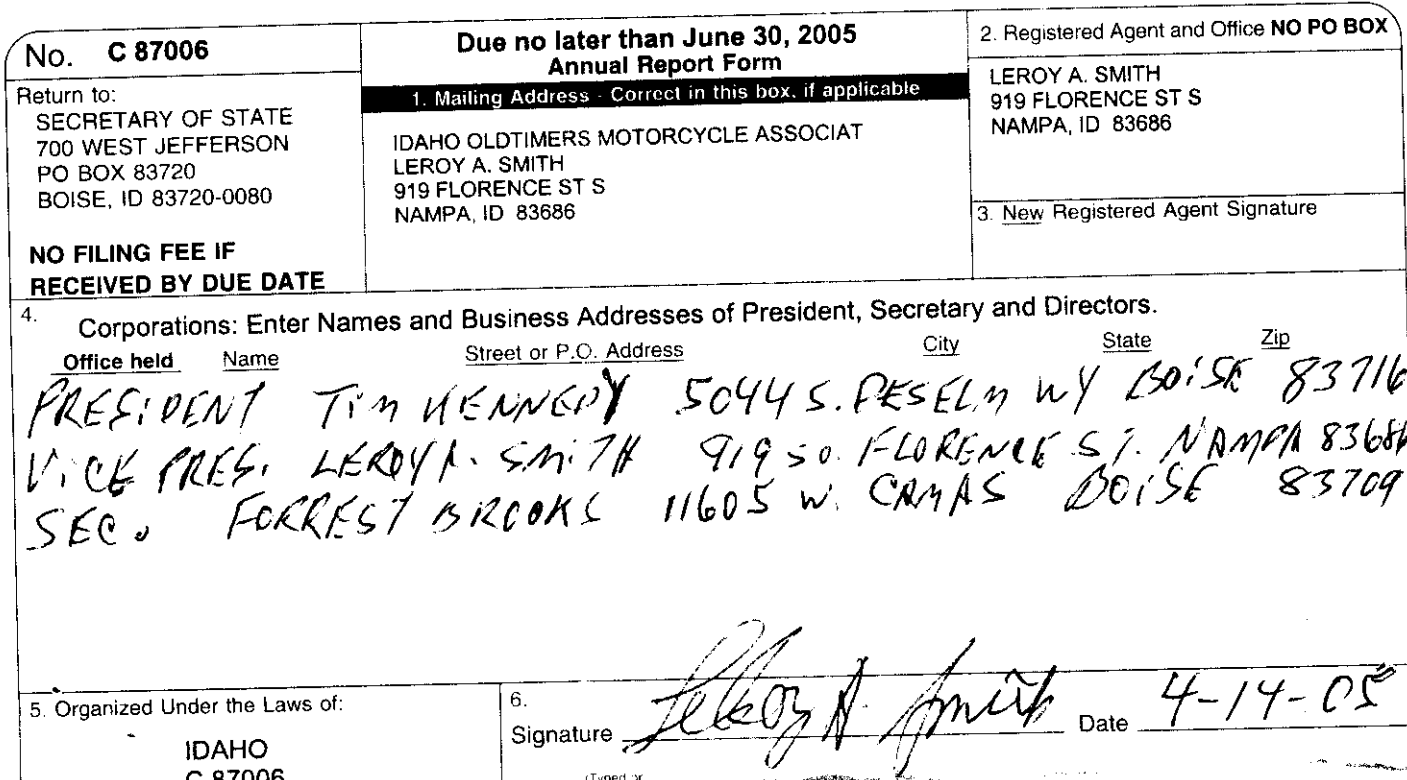 No. C 87006
Return to:
SECRETARY OF STATE
700 WEST JEFFERSON
PO BOX 83720
BOISE, ID 83720-0080
NO FILING FEE IF
RECEIVED BY DUE DATE
Due no later than June 30, 2005
Annual Report Form
1. Mailing Address - Correct in this box, if applicable
IDAHO OLDTIMERS MOTORCYCLE ASSOCIAT
LEROY A. SMITH
919 FLORENCE ST S
NAMPA, ID 83686
2. Registered Agent and Office NO PO BOX
LEROY A. SMITH
919 FLORENCE ST S
NAMPA, ID 83686
3. New Registered Agent Signature
4. Corporations: Enter Names and Business Addresses of President, Secretary and Directors.
Office held Name Street or P.O. Address City State Zip
PRESIDENT TIM KENNEDY 5044 S. WY BOISE 83716
VICE PRES. LEROY A. SMITH 919 SO. FLORENCE ST. NAMPA 83686
SEC. FORREST BROOKS 11605 W. CAMAS BOISE 83709
5. Organized Under the Laws of:
IDAHO
C 87006
6.
Signature LeRoy A. Smith Date 4-14-05
(Typed or